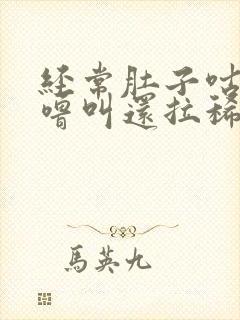 經常肚子咕
嚕叫還拉稀
馬英九